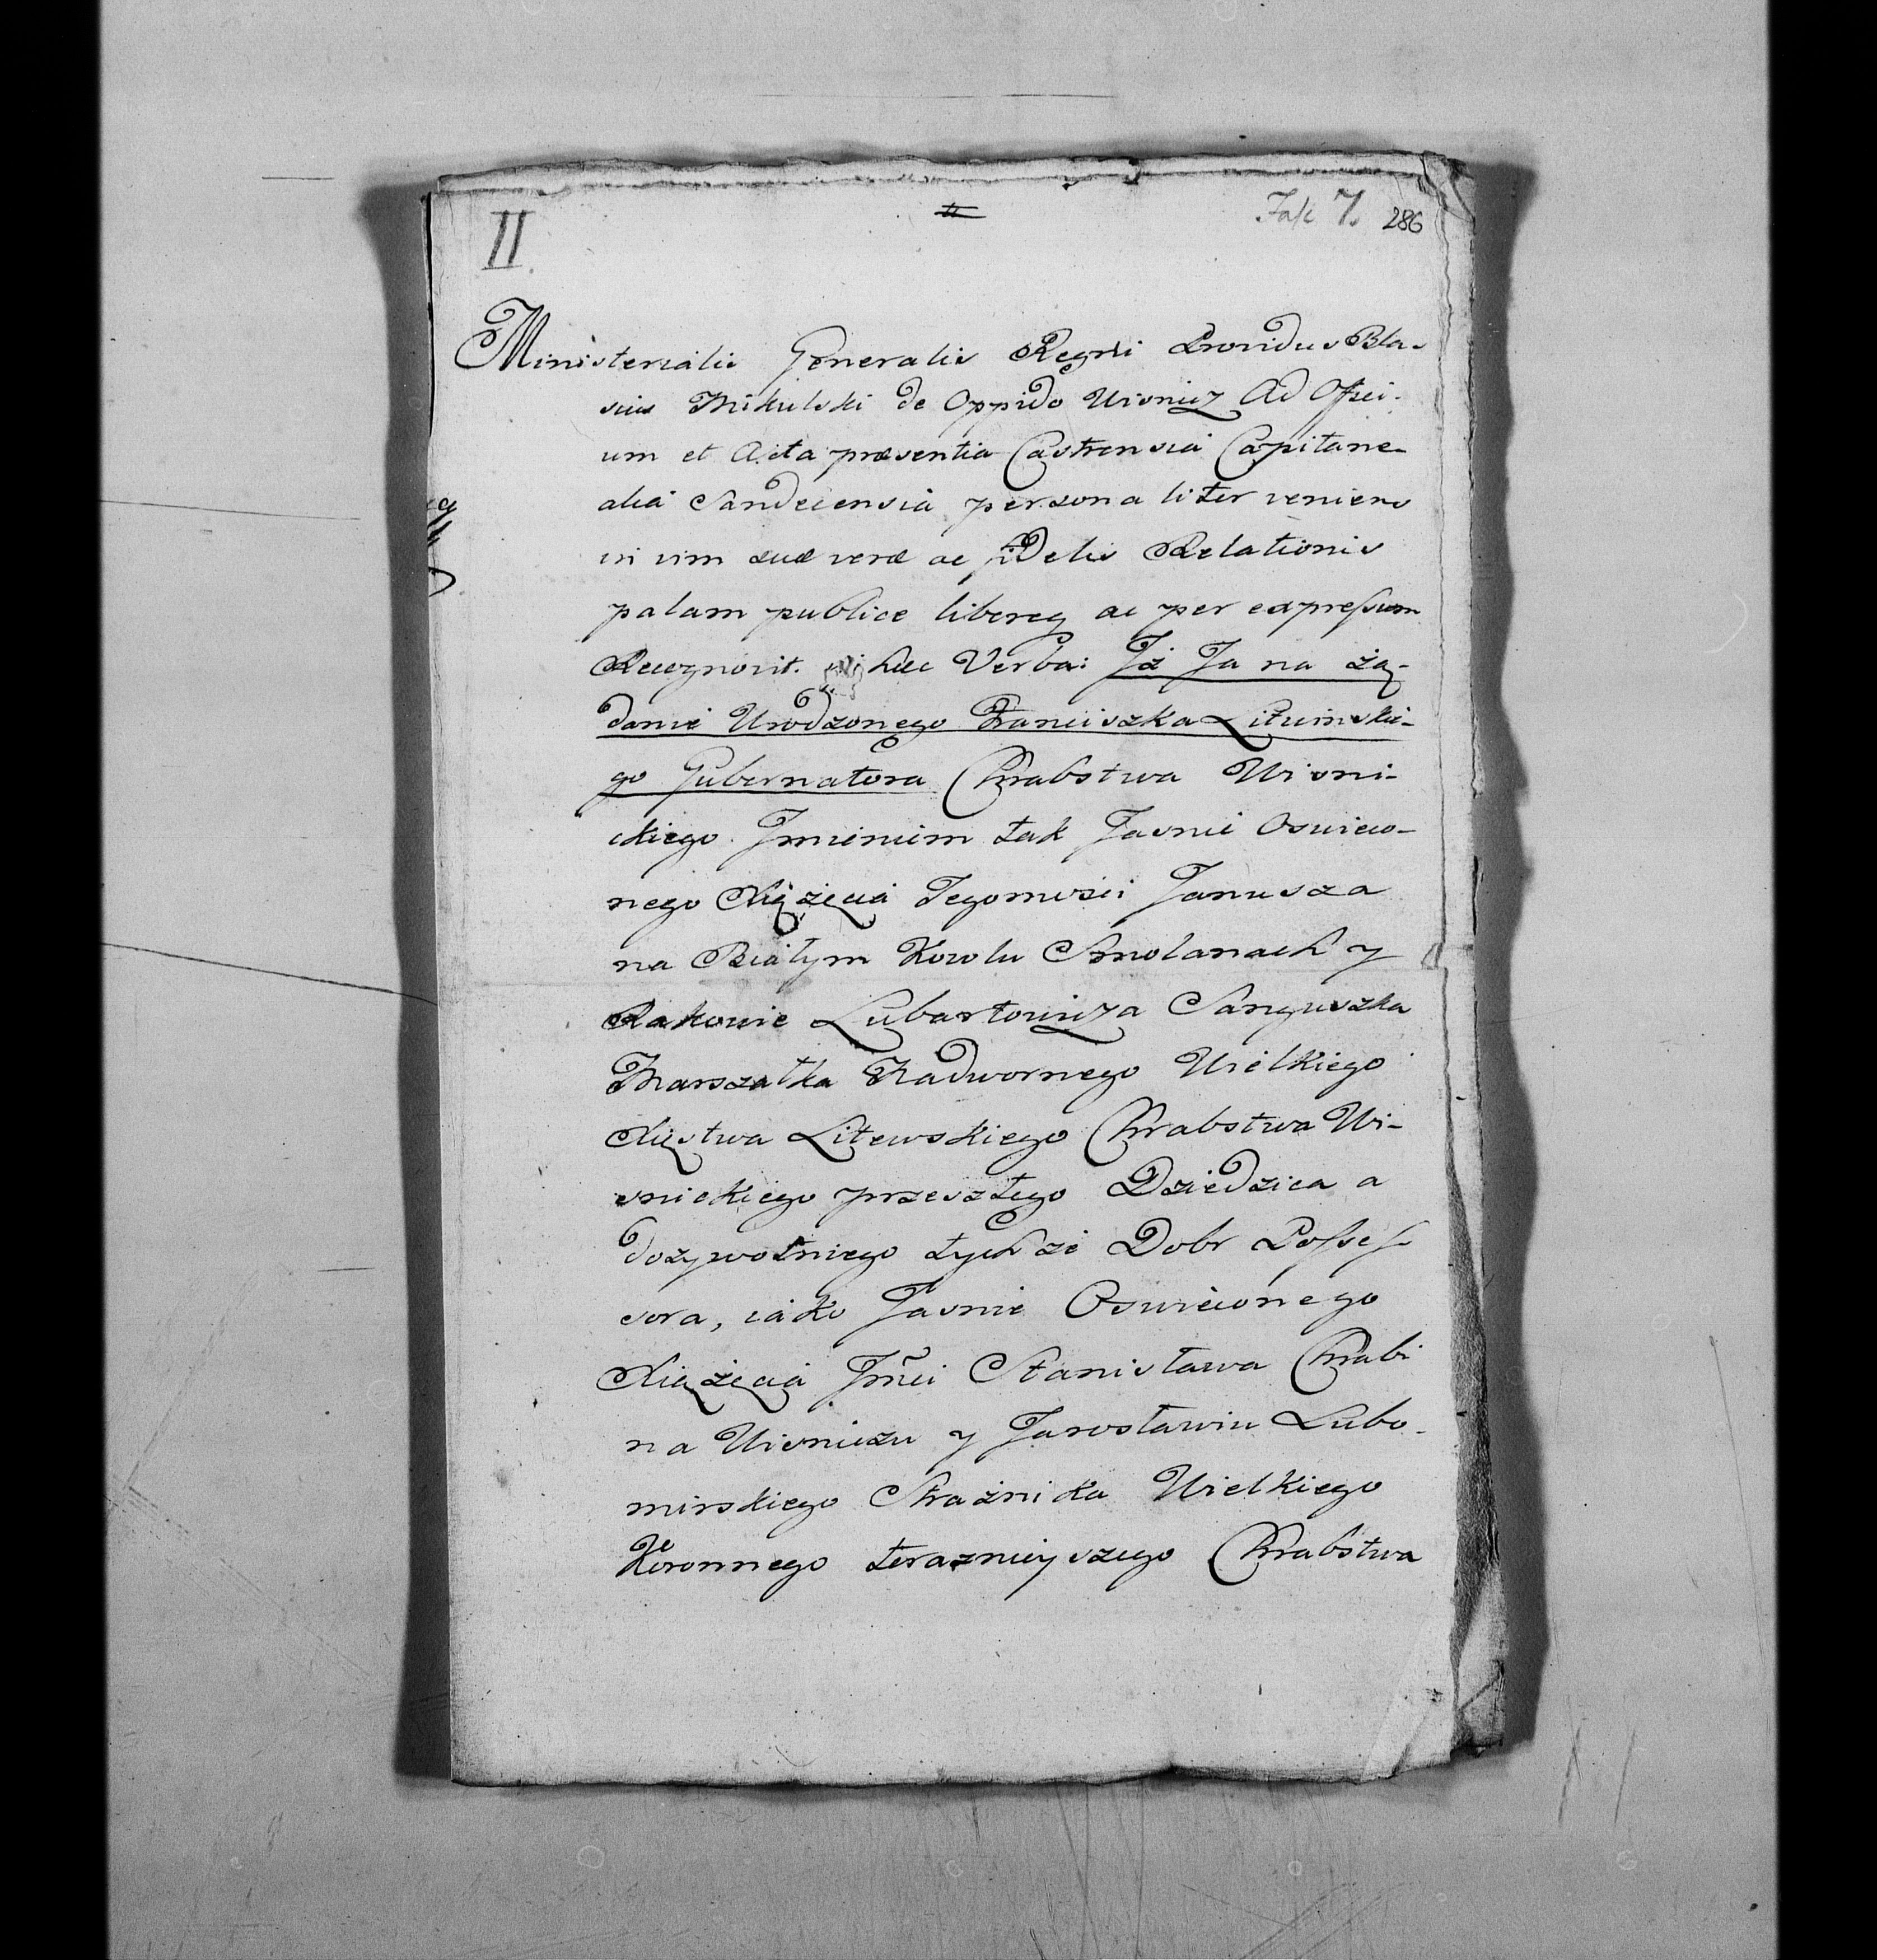 II.
Fasc 7. 286
Ministerialis Generalis Regni Providus Bla-
sius Mikulski de Oppido Wisnicz Ad Offici-
um et Acta præsentia Castrensia Capitane-
alia Sandecensia personaliter veniens
in vim suæ veræ ac fidelis Relationis
palam publice libereq ac per expressum
Recognovit. hæc Verba: Iż Ja na żą-
danie Urodzonego Franciszka Lituinskie-
go Gubernatora Chrabstwa Wisni-
ckiego Imieniem tak Jasnie Oswieco-
nego Xiążęcia Jegomosci Janusza
na Białym Kowlu Smolanach y
Rakowie Lubartowicza Sanguszka
Marszałka Nadwornego Wielkiego
Xięstwa Litewskiego Chrabstwa Wi-
snickiego przeszłego Dziedzica a
dozywotniego tychże Dobr Posses-
sora, iako Jasnie Oswieconego
Xiążęcia Jmci Stanisława Chrabi
na Wisniczu y Jarosławiu Lubo-
mirskiego Strażnika Wielkiego
Koronnego teraznieyszego Chrabstwa